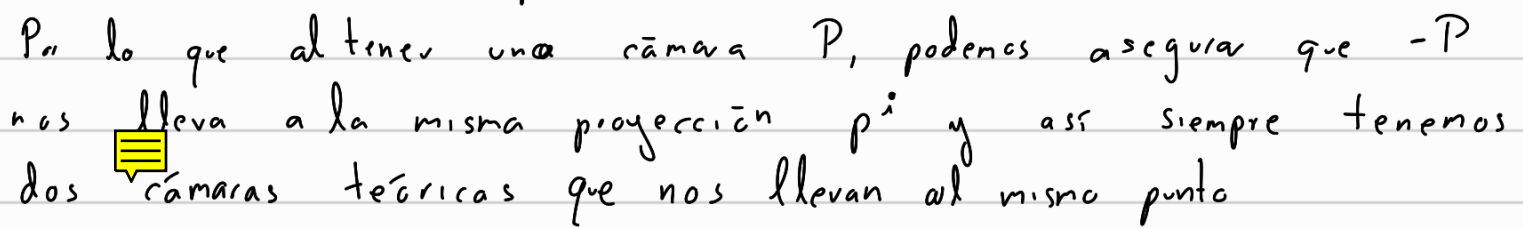 Por lo que al tener una cámara P, podemos asegurar que -P
nos lleva a la misma proyección pⁱ y así siempre tenemos
dos cámaras teóricas que nos llevan al mismo punto